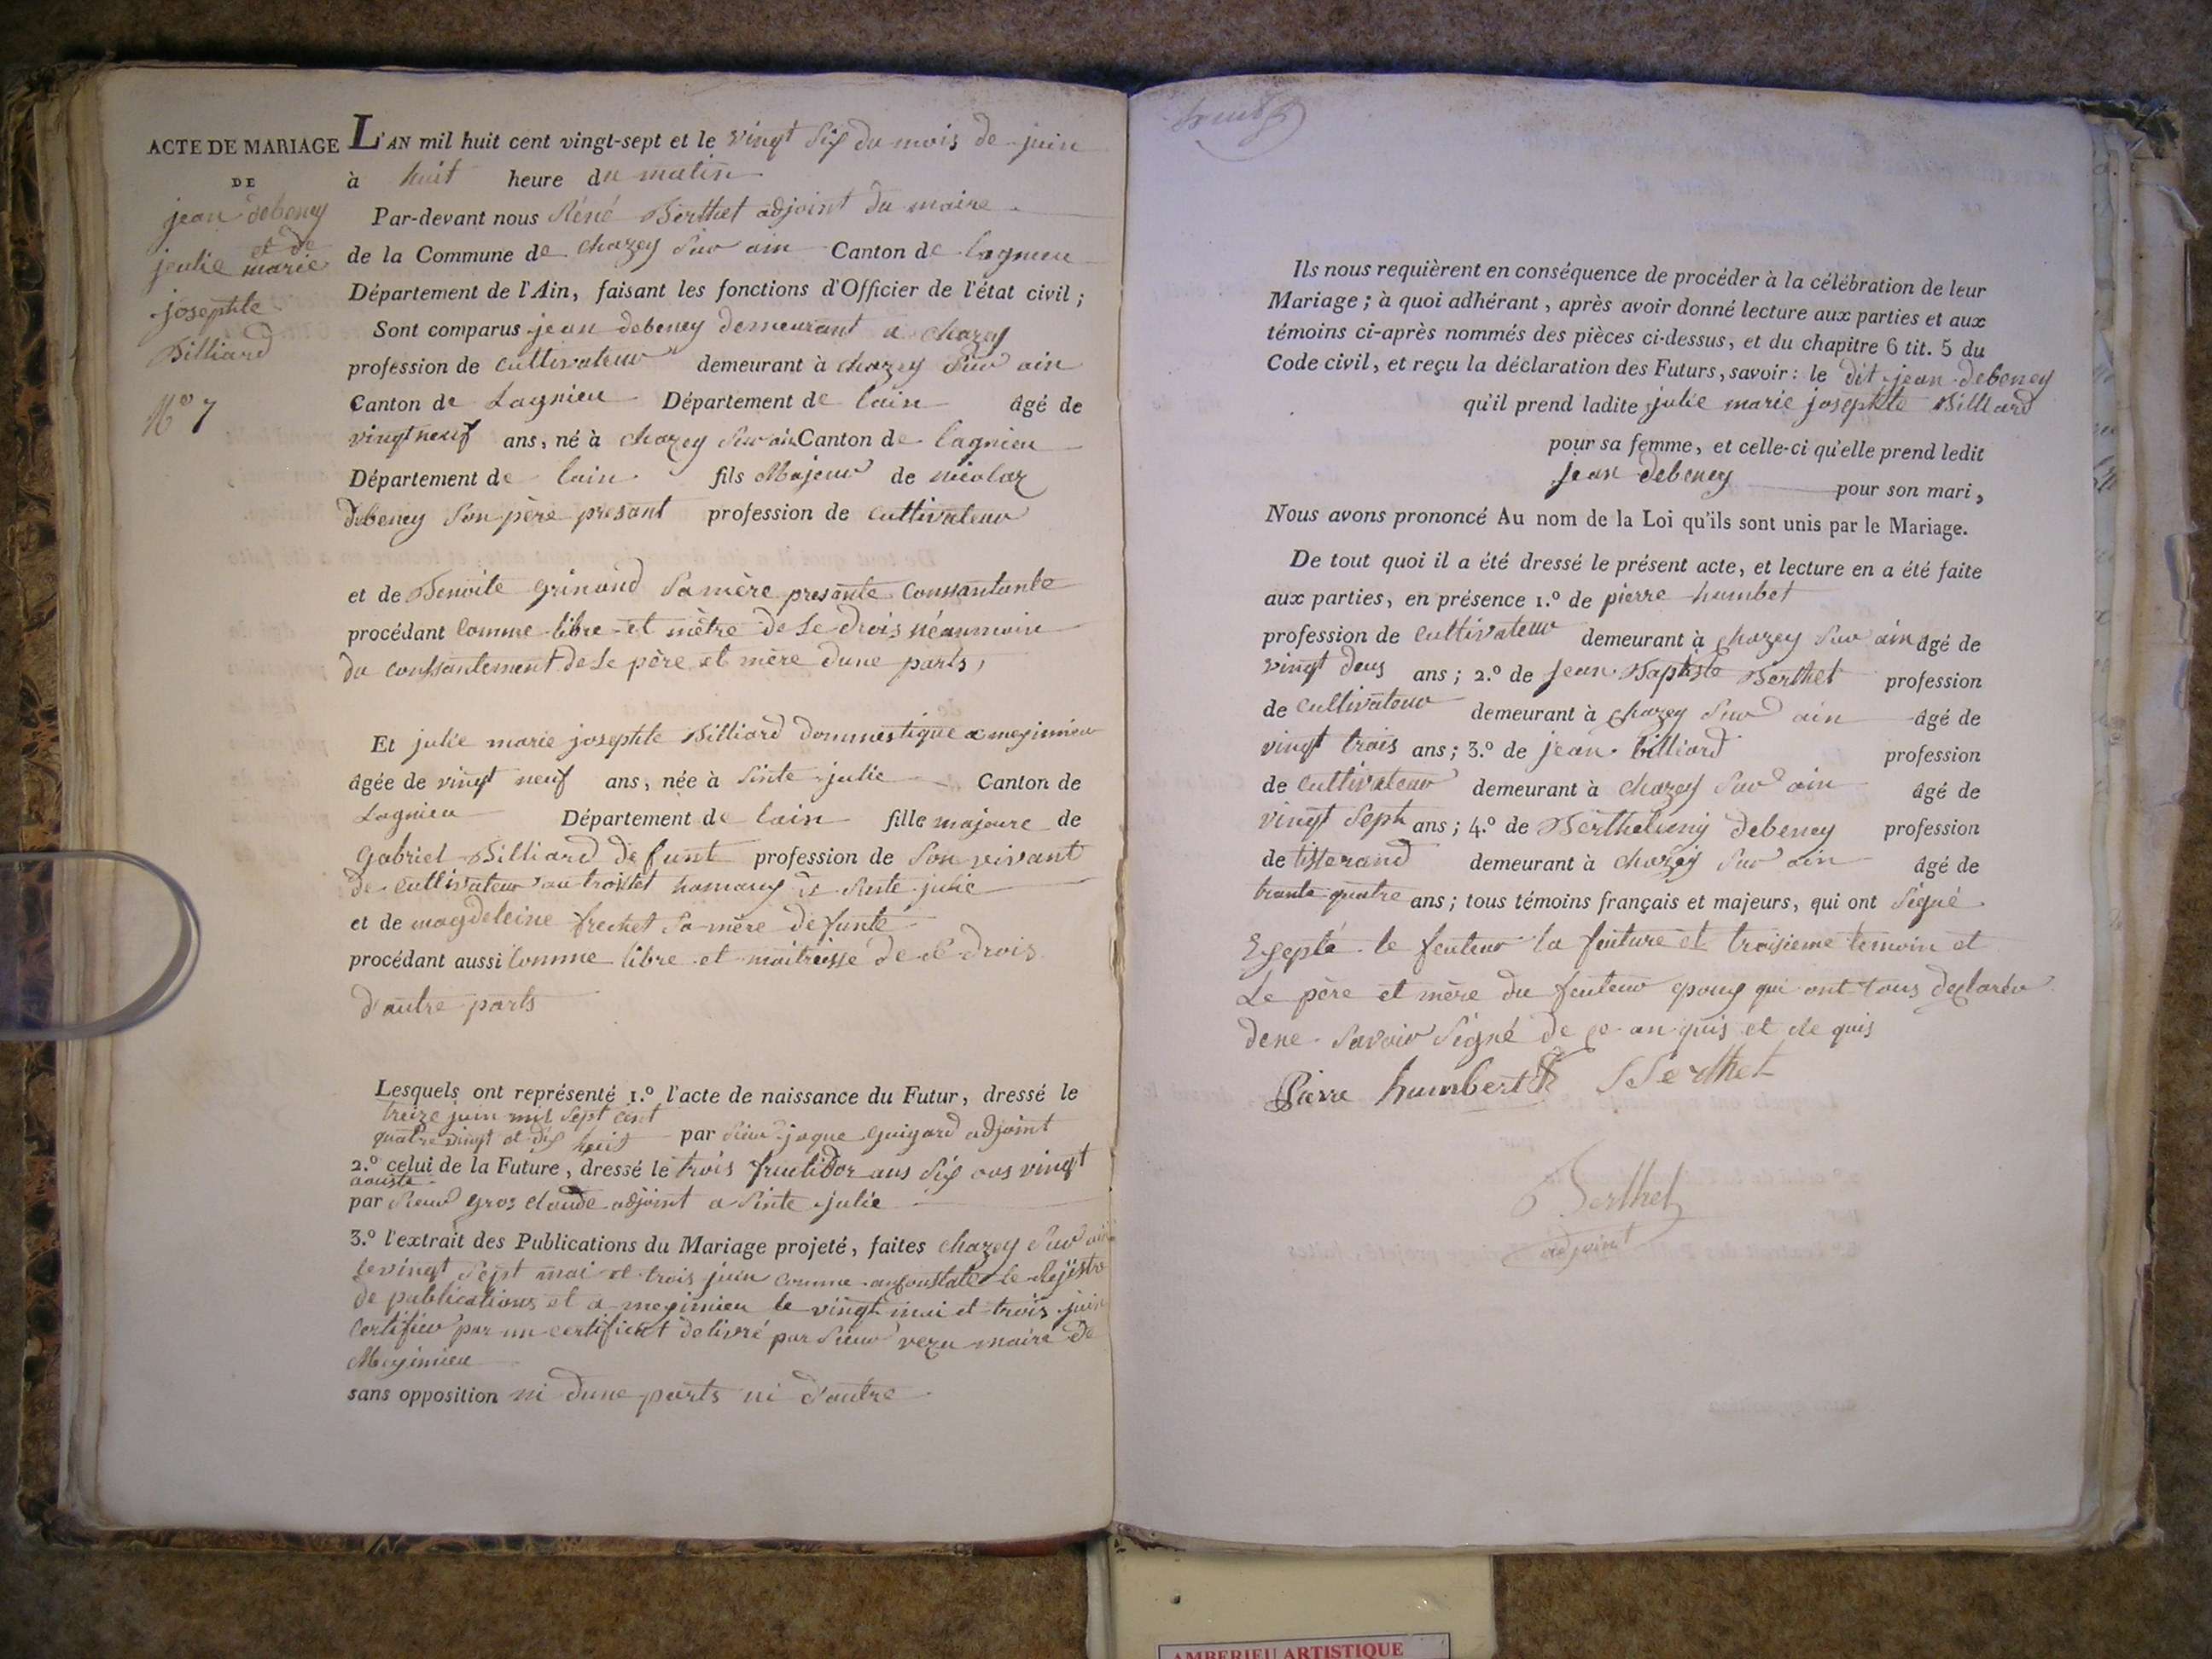 ACTE DE MARIAGE
DE
jean debeney
et de
jeulie marie
josephte
Billiard
N° 7
L'AN mil huit cent vingt-sept et le vingt six du mois de juin
à huit heure du matin
Par-devant nous Réné Berthet adjoint du maire
de la Commune de chazey sur ain Canton de lagnieu
Département de l'Ain, faisant les fonctions d'Officier de l'état civil ;
Sont comparus jean debeney demeurant a chazey
profession de cultivateur demeurant à chazey sur ain
Canton de Lagnieu Département de lain âgé de
vingt neuf ans, né à chazey sur ain Canton de lagnieu
Département de lain fils Majeur de nicolaz
debeney son père presant profession de cultivateur
et de Benoite grinand sa mère presante Conssantante
procédant comme libre et mètre de se drois néanmoin
du conssantement de se père et mère dune parts,
Et julie marie josephte Billiard dommestique a meximieu
âgée de vingt neuf ans, née à sinte julie Canton de
Lagnieu Département de lain fille majeure de
gabriel Billiard defunt profession de son vivant
de cultivateur au troktet hamaux de sinte julie
et de magdeleine frechet sa mère defunte
procédant aussi comme libre et maitreisse de se drois
d'autre parts
Lesquels ont représenté 1.º l'acte de naissance du Futur, dressé le
treize juin mil sept cent
quatre vingt et dix huit par sieur jaque guigard adjoint
2.º celui de la Future, dressé le trois fructidor ans six ous vingt
aouste
par sieur gros claude adjoint a sinte julie
3.º l'extrait des Publications du Mariage projeté, faites chazey sur ain
le vingt sept mai et trois juin comme an constate le rejistre
de publications et a meximieu le vingt mai et trois juin
certifieu par un certificat delivré par sieur vezu maire de
Meximieu
sans opposition ni dune parts ni d'autre
Ils nous requièrent en conséquence de procéder à la célébration de leur
Mariage ; à quoi adhérant, après avoir donné lecture aux parties et aux
témoins ci-après nommés des pièces ci-dessus, et du chapitre 6 tit. 5 du
Code civil, et reçu la déclaration des Futurs, savoir : le dit jean debeney
qu'il prend ladite julie marie josephte Billiard
pour sa femme, et celle-ci qu'elle prend ledit
jean debeney pour son mari,
Nous avons prononcé Au nom de la Loi qu'ils sont unis par le Mariage.
De tout quoi il a été dressé le présent acte, et lecture en a été faite
aux parties, en présence 1.º de pierre humbet
profession de cultivateur demeurant à chazey sur ain âgé de
vingt deux ans ; 2.º de jean Baptiste Berthet profession
de cultivateur demeurant à chazey sur ain âgé de
vingt trois ans ; 3.º de jean billiard profession
de cultivateur demeurant à chazey sur ain âgé de
vingt sept ans ; 4.º de Berthelemy debeney profession
de tisserand demeurant à chazey sur ain âgé de
trante quatre ans ; tous témoins français et majeurs, qui ont signé
Exepté le feuteur la feuture et troisieme temoin et
Le père et mère du feuteur epoux qui ont tous declaréu
dene savoir signé de ce an quis et de quis
Pierre humbert Berthet
Berthet
adjoint
AMBERIEU ARTISTIQUE